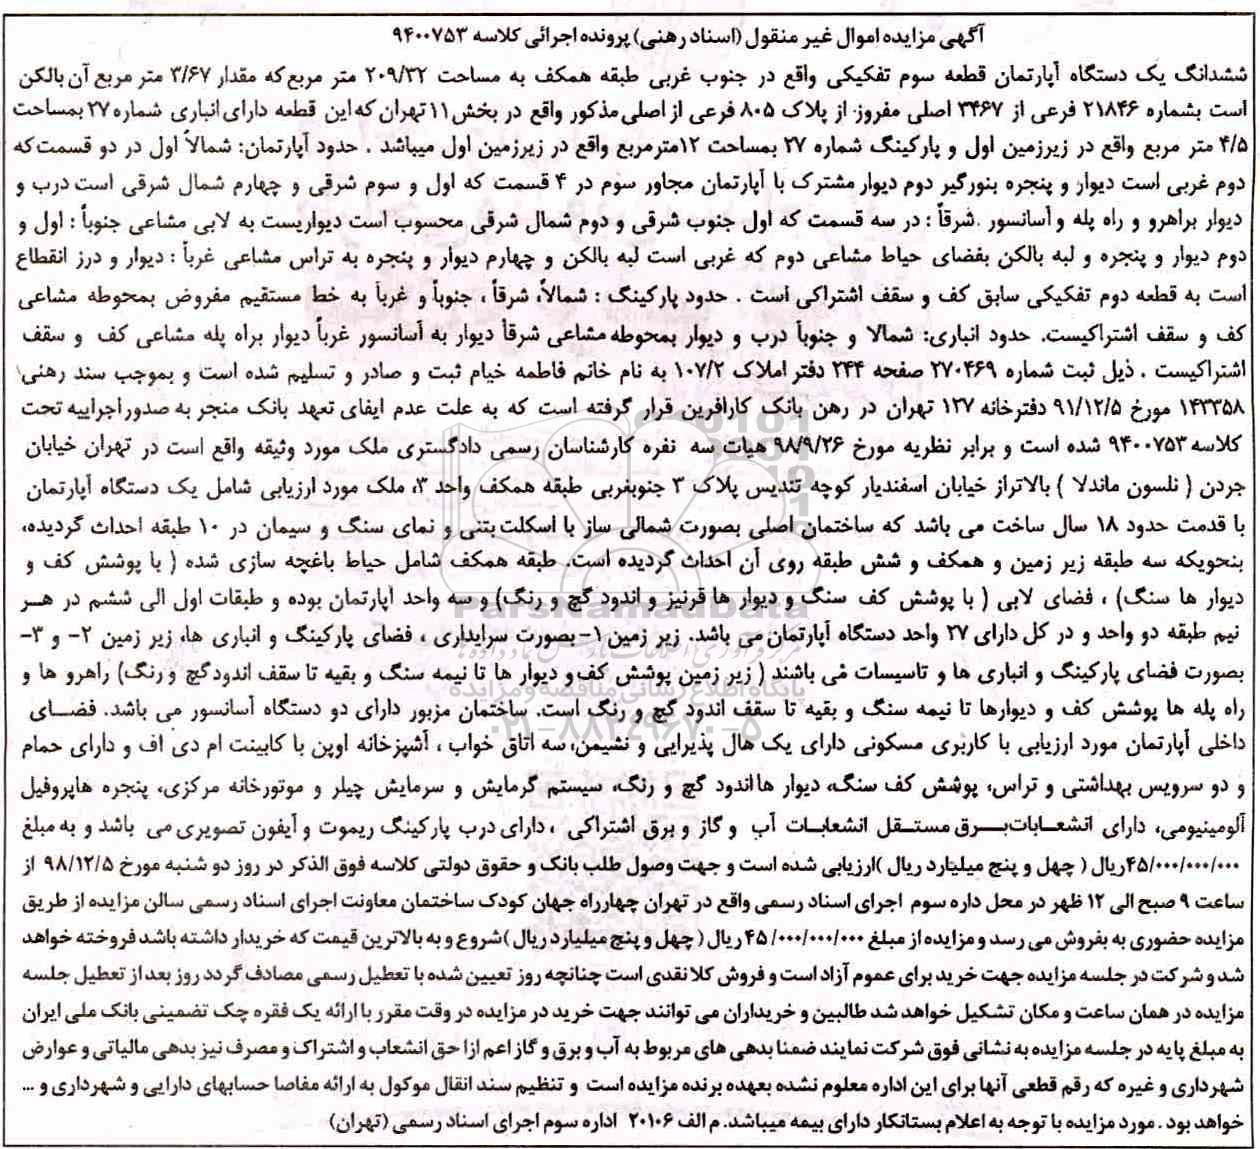 آگهی مزایده اموال غیر منقول (اسناد رهنی) پرونده اجرائی کلاسه ۹۴۰۰۷۵۳
ششدانگ یک دستگاه آپارتمان قطعه سوم تفکیکی واقع در جنوب غربی طبقه همکف به مساحت ۲۰۹/۳۲ متر مربع که مقدار ۳/۶۷ متر مربع آن بالکن
است بشماره ۲۱۸۴۶ فرعی از ۳۴۶۷ اصلی مفروز از پلاک ۸۰۵ فرعی از اصلی مذکور واقع در بخش ۱۱ تهران که این قطعه دارای انباری شماره ۲۷ بمساحت
۴/۵ متر مربع واقع در زیرزمین اول و پارکینگ شماره ۲۷ بمساحت ۱۲مترمربع واقع در زیرزمین اول میباشد . حدود آپارتمان: شمالاً اول در دو قسمت که
دوم غربی است دیوار و پنجره بنورگیر دوم دیوار مشترک با آپارتمان مجاور سوم در ۴ قسمت که اول و سوم شرقی و چهارم شمال شرقی است درب و
دیوار براهرو و راه پله و آسانسور .شرقاً : در سه قسمت که اول جنوب شرقی و دوم شمال شرقی محسوب است دیواریست به لابی مشاعی جنوباً : اول و
دوم دیوار و پنجره و لبه بالکن بفضای حیاط مشاعی دوم که غربی است لبه بالکن و چهارم دیوار و پنجره به تراس مشاعی غرباً : دیوار و درز انقطاع
است به قطعه دوم تفکیکی سابق کف و سقف اشتراکی است . حدود پارکینگ : شمالاً، شرقاً ، جنوباً و غرباً به خط مستقیم مفروض بمحوطه مشاعی
کف و سقف اشتراکیست. حدود انباری: شمالا و جنوباً درب و دیوار بمحوطه مشاعی شرقاً دیوار به آسانسور غرباً دیوار براه پله مشاعی کف و سقف
اشتراکیست . ذیل ثبت شماره ۲۷۰۴۶۹ صفحه ۲۴۴ دفتر املاک ۱۰۷/۲ به نام خانم فاطمه خیام ثبت و صادر و تسلیم شده است و بموجب سند رهنی
۱۴۳۳۵۸ مورخ ۹۱/۱۲/۵ دفترخانه ۱۲۷ تهران در رهن بانک کارافرین قرار گرفته است که به علت عدم ایفای تعهد بانک منجر به صدور اجراییه تحت
کلاسه ۹۴۰۰۷۵۳ شده است و برابر نظریه مورخ ۹۸/۹/۲۶ هیات سه نفره کارشناسان رسمی دادگستری ملک مورد وثیقه واقع است در تهران خیابان
جردن ( نلسون ماندلا ) بالاتراز خیابان اسفندیار کوچه تندیس پلاک ۳ جنوبغربی طبقه همکف واحد ۳، ملک مورد ارزیابی شامل یک دستگاه آپارتمان
با قدمت حدود ۱۸ سال ساخت می باشد که ساختمان اصلی بصورت شمالی ساز با اسکلت بتنی و نمای سنگ و سیمان در ۱۰ طبقه احداث گردیده،
بنحویکه سه طبقه زیر زمین و همکف و شش طبقه روی آن احداث گردیده است. طبقه همکف شامل حیاط باغچه سازی شده ( با پوشش کف و
دیوار ها سنگ) ، فضای لابی ( با پوشش کف سنگ و دیوار ها قرنیز و اندود گچ و رنگ) و سه واحد آپارتمان بوده و طبقات اول الی ششم در هـر
نیم طبقه دو واحد و در کل دارای ۲۷ واحد دستگاه آپارتمان می باشد. زیر زمین ۱- بصورت سرایداری ، فضای پارکینگ و انباری ها، زیر زمین ۲- و ۳-
بصورت فضای پارکینگ و انباری ها و تاسیسات می باشند ( زیر زمین پوشش کف و دیوار ها تا نیمه سنگ و بقیه تا سقف اندود گچ و رنگ) راهرو ها و
راه پله ها پوشش کف و دیوارها تا نیمه سنگ و بقیه تا سقف اندود گچ و رنگ است. ساختمان مزبور دارای دو دستگاه آسانسور می باشد. فضـــای
داخلی آپارتمان مورد ارزیابی با کاربری مسکونی دارای یک هال پذیرایی و نشیمن، سه اتاق خواب ، آشپزخانه اوپن با کابینت ام دی اف و دارای حمام
و دو سرویس بهداشتی و تراس، پوشش کف سنگ، دیوار ها اندود گچ و رنگ، سیستم گرمایش و سرمایش چیلر و موتورخانه مرکزی، پنجره هاپروفیل
آلومینیومی، دارای انشعـابات‌بـــرق مستـقل انشعابـات آب و گاز و برق اشتراکی ، دارای درب پارکینگ ریموت و آیفون تصویری می باشد و به مبلغ
۴۵/۰۰۰/۰۰۰/۰۰۰ریال ( چهل و پنج میلیارد ریال )ارزیابی شده است و جهت وصول طلب بانک و حقوق دولتی کلاسه فوق الذکر در روز دو شنبه مورخ ۹۸/۱۲/۵ از
ساعت ۹ صبح الی ۱۲ ظهر در محل داره سوم اجرای اسناد رسمی واقع در تهران چهارراه جهان کودک ساختمان معاونت اجرای اسناد رسمی سالن مزایده از طریق
مزایده حضوری به بفروش می رسد و مزایده از مبلغ ۴۵/۰۰۰/۰۰۰/۰۰۰ ریال ( چهل و پنج میلیارد ریال )شروع و به بالاترین قیمت که خریدار داشته باشد فروخته خواهد
شد و شرکت در جلسه مزایده جهت خرید برای عموم آزاد است و فروش کلا نقدی است چنانچه روز تعیین شده با تعطیل رسمی مصادف گردد روز بعد از تعطیل جلسه
مزایده در همان ساعت و مکان تشکیل خواهد شد طالبین و خریداران می توانند جهت خرید در مزایده در وقت مقرر با ارائه یک فقره چک تضمینی بانک ملی ایران
به مبلغ پایه در جلسه مزایده به نشانی فوق شرکت نمایند ضمنا بدهی های مربوط به آب و برق و گاز اعم ازا حق انشعاب و اشتراک و مصرف نیز بدهی مالیاتی و عوارض
شهرداری و غیره که رقم قطعی آنها برای این اداره معلوم نشده بعهده برنده مزایده است و تنظیم سند انقال موکول به ارائه مفاصا حسابهای دارایی و شهرداری و ...
خواهد بود . مورد مزایده با توجه به اعلام بستانکار دارای بیمه میباشد. م الف ۲۰۱۰۶ اداره سوم اجرای اسناد رسمی (تهران)
ParsNamadData
پایگاه اطلاع رسانی مناقصه و مزایده
۰۲۱-۸۸۳۴۹۶۷۰-۵